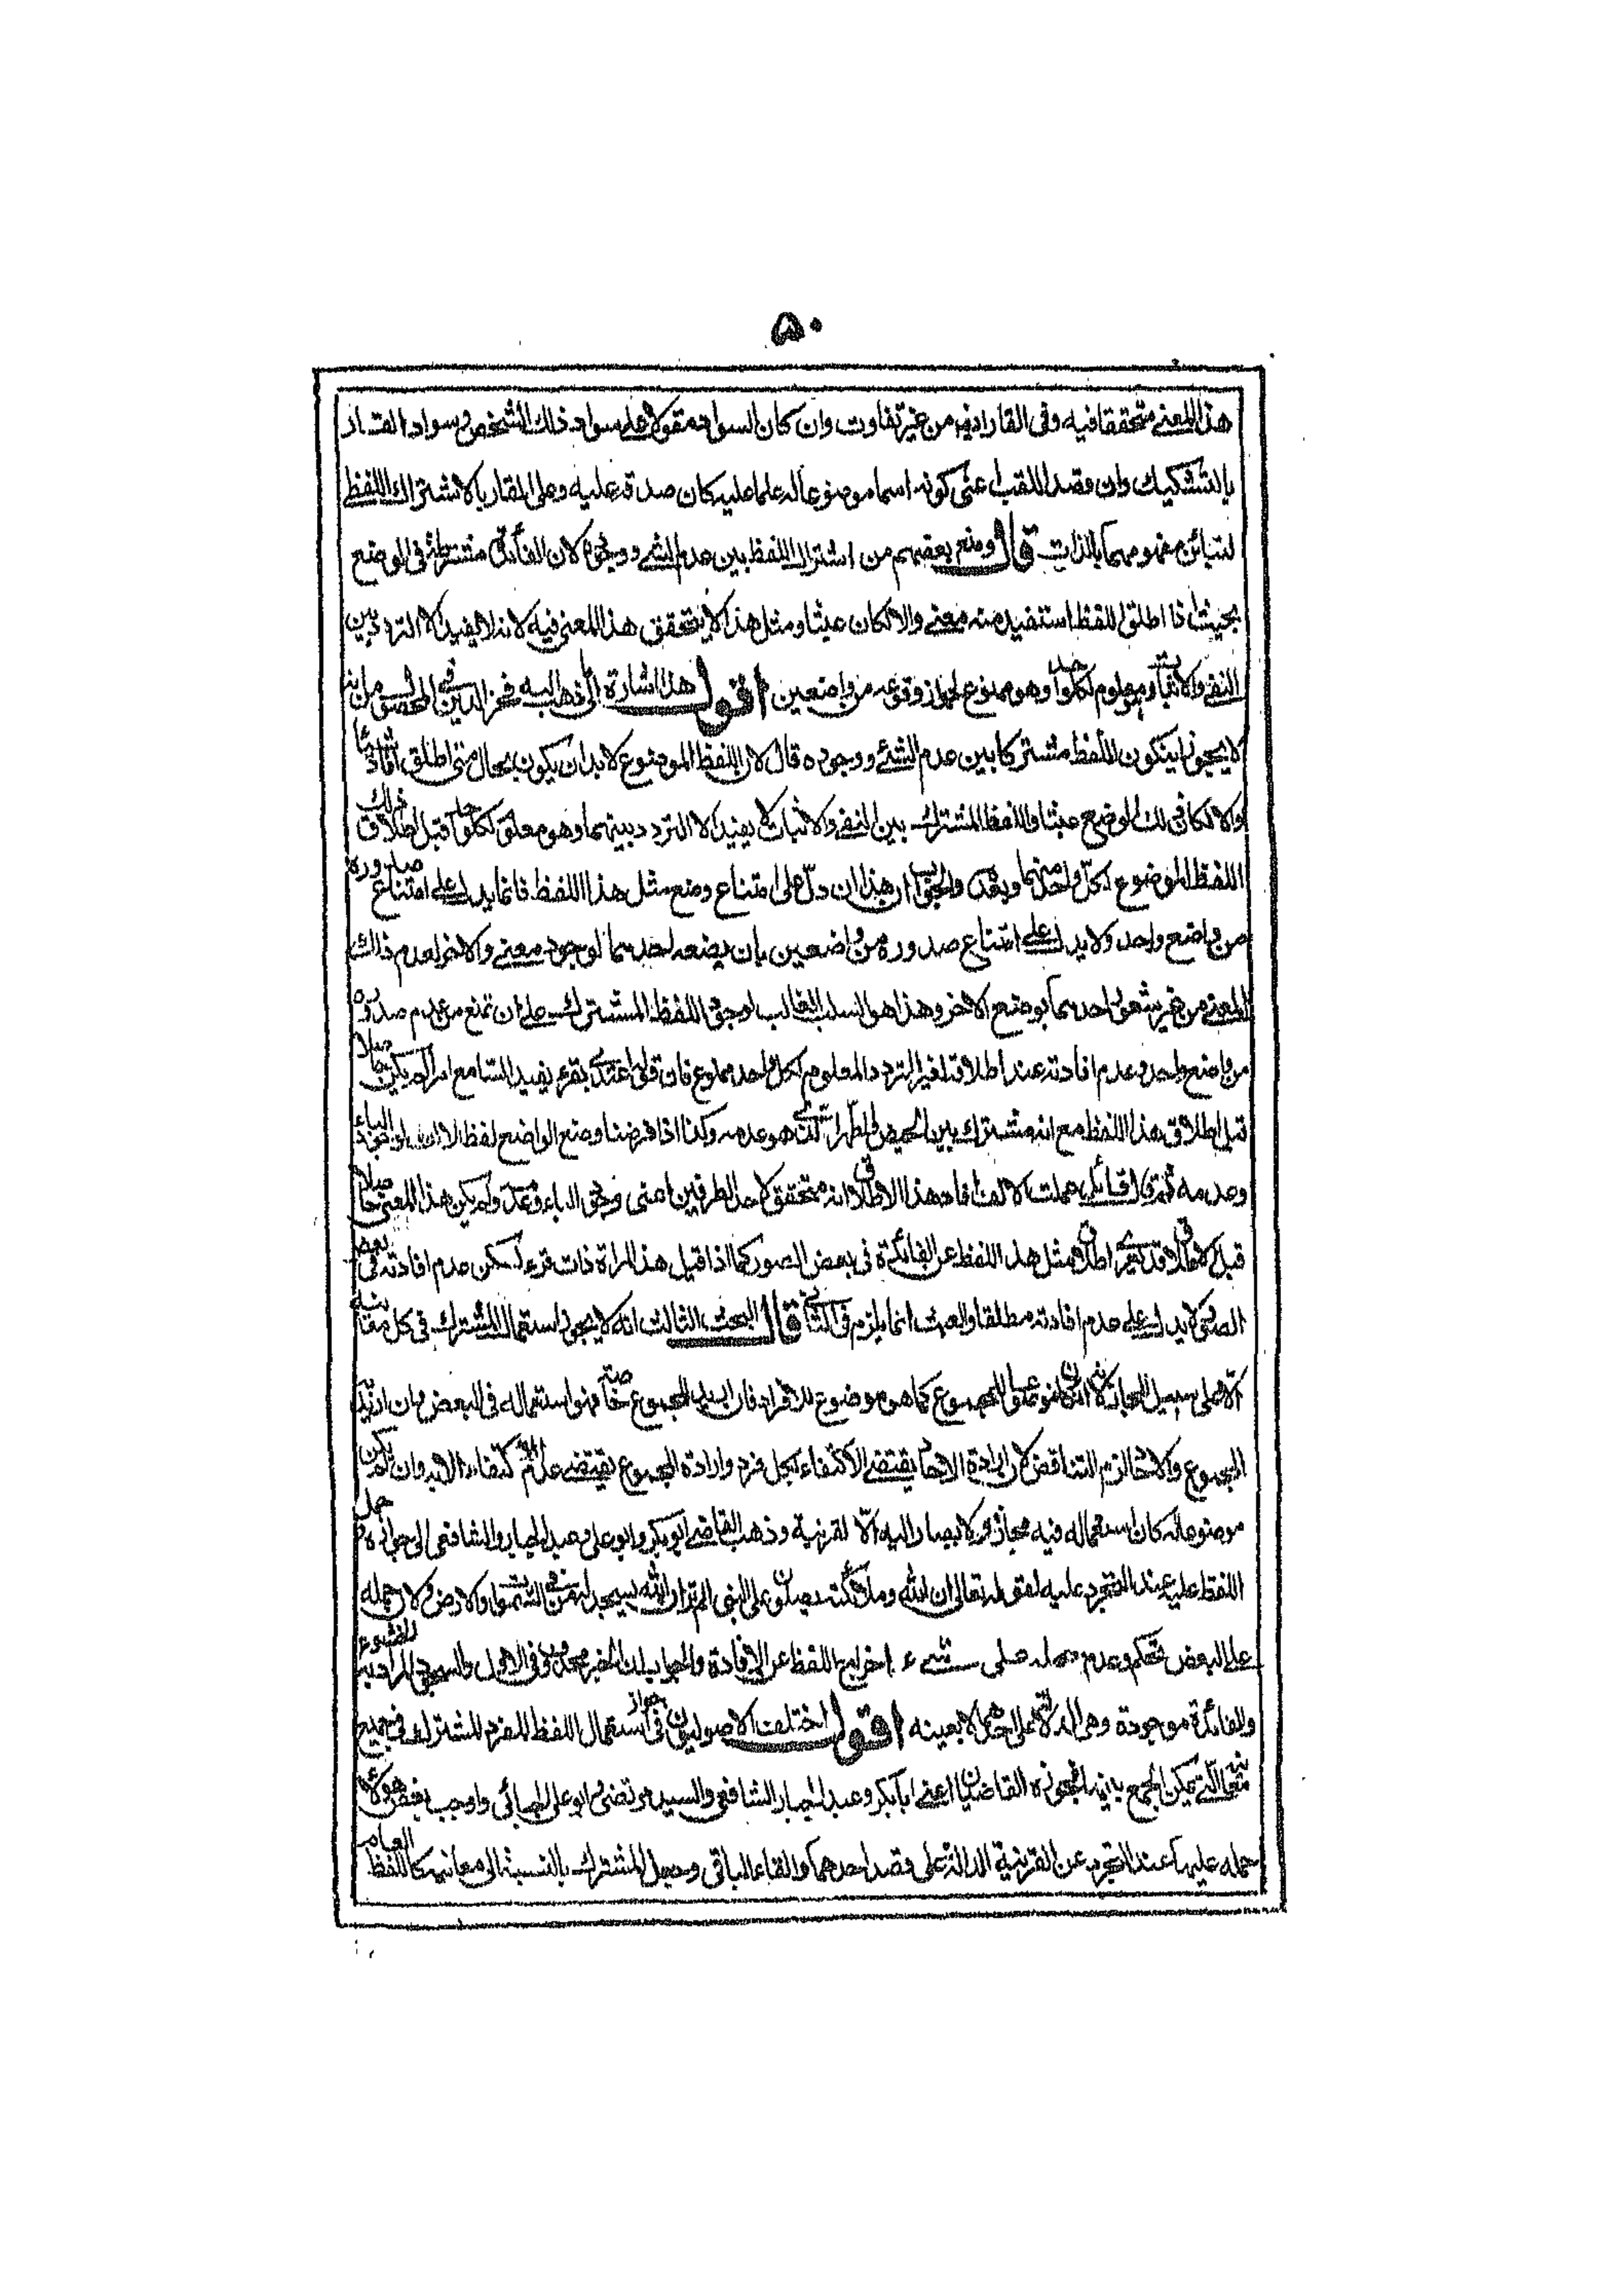 ۵۰
هذا المعنى متحققا فيه وفى القار اذ فيه من غير تفاوت وان كان السواد مقولا على سواد ذلك الشخص وسواد القار
بالتشكيك وان قصد اللقب اعنى كونه اسما موضوعا له علما عليه كان صدقه عليه وعلى القار بالاشتراك اللفظى
لتبائن مفهوميهما بالذات قال ومنع بعضهم من اشتراك اللفظ بين عدم الشئ ووجوده لان الفائدة مشترطة فى الوضع
بحيث اذا اطلق اللفظ استفيد منه معنى والا لكان عبثا ومثل هذا لا يتحقق هذا المعنى فيه لانه لا يفيد الا التردد بين
النفى والاثبات وهو معلوم لكل واحد وهو ممنوع لجواز وقوعه من واضعين اقول هذا اشارة الى ما ذهب اليه فخر الدين فى المحصول من انه
لا يجوز ان يكون اللفظ مشتركا بين عدم الشئ ووجوده قال لان اللفظ الموضوع لا بد ان يكون بحال متى اطلق افاد شيئا
والا لكان ذلك الوضع عبثا واللفظ المشترك بين النفى والاثبات لا يفيد الا التردد بينهما وهو معلوم لكل واحد قبل اطلاق ذلك
اللفظ الموضوع لكل واحد منهما وبعده والجواب ان هذا ان دل على امتناع وضع مثل هذا اللفظ فانما يدل على امتناع صدوره
من واضع واحد ولا يدل على امتناع صدوره من واضعين بان يضعه احدهما لوجود معنى والاخر لعدم ذلك
المعنى من غير شعور احدهما بوضع الاخر وهذا هو السبب الغالب لوجود اللفظ المشترك على ان نمنع من عدم صدوره
من واضع واحد وعدم افادته عند اطلاقه لغير التردد المعلوم لكل واحد ممنوع فان قولنا اعتدى بقرء يفيد السامع امرا لم يكن حاصلا
قبل اطلاق هذا اللفظ مع انه مشترك بين الحيض والطهر الذى هو عدمه وكذا اذا فرضنا وضع الواضع لفظ الالف لوجود الباء
وعدمه ثم قال قائل علمت الالف افاد هذا الاطلاق انه متحقق لاحد الطرفين اعنى وجود الباء وعدمه ولم يكن هذا المعنى حاصلا
قبل الاطلاق قد يعرى اطلاق مثل هذا اللفظ عن الفائدة فى بعض الصور كما اذا قيل هذه المراة ذات قرء لكن عدم افادته فى بعض
الصور لا يدل على عدم افادته مطلقا والعبث انما يلزم فى الثانى قال البحث الثالث انه لا يجوز استعمال المشترك فى كل معانيه
الا على سبيل المجاز لانه ان كان موضوعا للمجموع كما هو موضوع للافراد فان اريد المجموع خاصة فهو استعماله فى البعض وان اريد
المجموع والاحاد لزم التناقض لان ارادة الاحاد يقتضى الاكتفاء بكل فرد وارادة المجموع يقتضى عدم الاكتفاء الا به وان لم يكن
موضوعا له كان استعماله فيه مجازا ولا يصار اليه الا لقرينة وذهب القاضى ابو بكر وابو على وعبد الجبار والشافعى الى جوازه وحمل
اللفظ عليه عند التجرد عليه لقوله تعالى ان الله وملائكته يصلون على النبى الم تر ان الله يسجد له من فى السموات والارض ولان حمله
على البعض تحكم وعدم حمله على شىء اخراج اللفظ عن الافادة والجواب ان الخبر محذوف فى الاول والسجود المراد به الخشوع
والفائدة موجودة وهى الدلالة على احدهما لا بعينه اقول اختلف الاصوليون فى جواز استعمال اللفظ المفرد المشترك فى جميع
معانيه التى يمكن الجمع بينها فجوزه القاضيان اعنى ابا بكر وعبد الجبار والشافعى والسيد مرتضى وابو على الجبائى واوجب بعض هؤلاء
حمله عليها عند التجرد عن القرينة الدالة على قصد احدهما والغاء الباقى وجعل المشترك بالنسبة الى معانيه كاللفظ العام